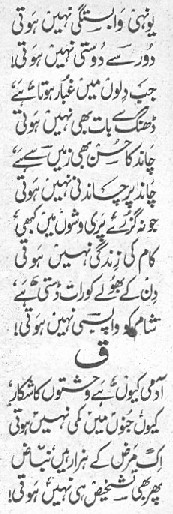 یونہی وابستگی نہیں ہوتی
دُور سے دوستی نہیں ہوتی!
جب دِلوں میں غبار ہوتا ہے
ڈھنگ سے بات بھی نہیں ہوتی
چاند کا حُسن بھی زمیں سے ہے
چاند پر چاندنی نہیں ہوتی
جو نہ گزرے پری وشوں میں کبھی
کام کی زندگی نہیں ہوتی
دن کے بھولے کو رات ڈستی ہے
شام کو واپسی نہیں ہوتی!
ق
آدمی کیوں ہے وحشتوں کا شکار
کیوں جنوں میں کمی نہیں ہوتی
اِک مرض کے ہزار ہیں نبّاض
پھر بھی تشخیص ہی نہیں ہوتی!